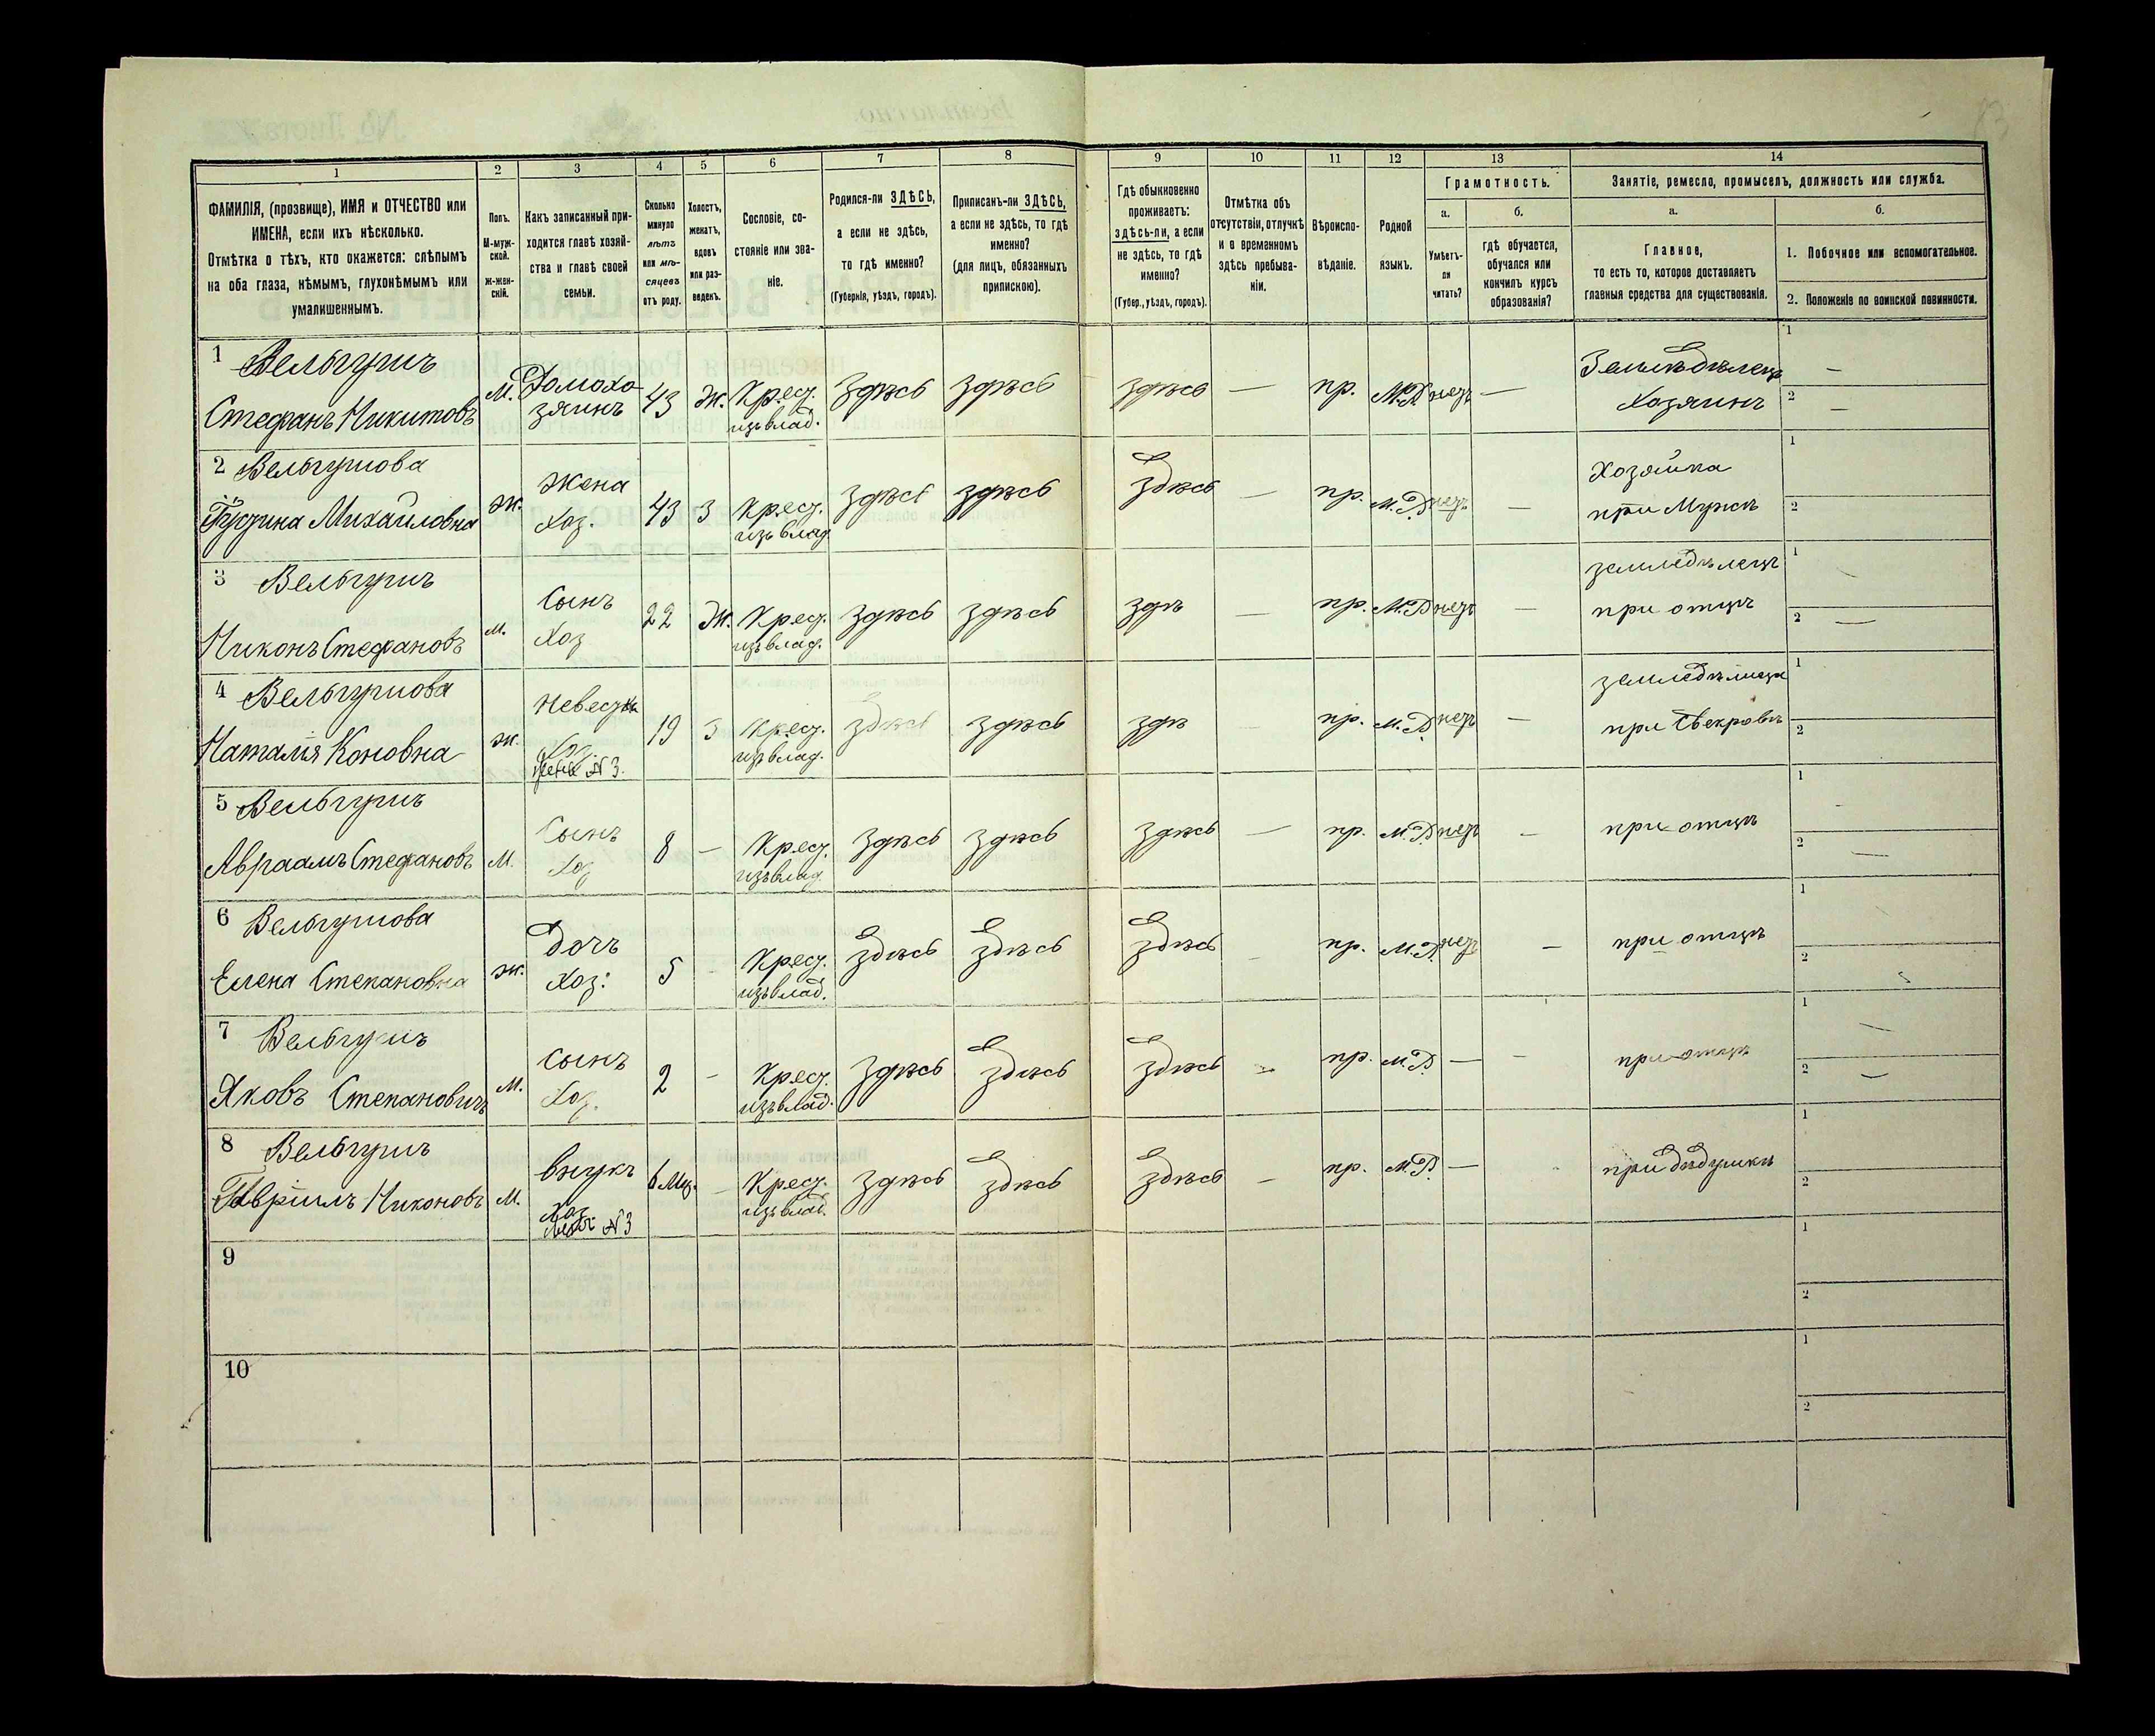 1 2 3 4 5 6 7 8 9 10 11 12 13 14
ФАМИЛІЯ, (прозвище), ИМЯ и ОТЧЕСТВО или
ИМЕНА, если ихъ нѣсколько.
Отмѣтка о тѣхъ, кто окажется: слѣпымъ
на оба глаза, нѣмымъ, глухонѣмымъ или
умалишеннымъ.
Полъ.
М-муж-
ской.
Ж-жен-
скій.
Какъ записанный при-
ходится главѣ хозяй-
ства и главѣ своей
семьи.
Сколько
минуло
лѣтъ
или мѣ-
сяцевъ
отъ роду.
Холостъ,
женатъ,
вдовъ
или раз-
веденъ.
Сословіе, со-
стояніе или зва-
ніе.
Родился-ли ЗДѢСЬ,
а если не здѣсь,
то гдѣ именно?
(Губернія, уѣздъ, городъ).
Приписанъ-ли ЗДѢСЬ,
а если не здѣсь, то гдѣ
именно?
(для лицъ, обязанныхъ
припискою).
Гдѣ обыкновенно
проживаетъ:
здѣсь-ли, а если
не здѣсь, то гдѣ
именно?
(Губер., уѣздъ, городъ).
Отмѣтка объ
отсутствіи, отлучкѣ
и о временномъ
здѣсь пребыва-
ніи.
Вѣроиспо-
вѣданіе.
Родной
языкъ.
Грамотность.
а.
Умѣетъ-
ли
читать?
б.
гдѣ обучается,
обучался или
кончилъ курсъ
образованія?
Занятіе, ремесло, промыселъ, должность или служба.
а.
Главное,
то есть то, которое доставляетъ
главныя средства для существованія.
б.
1. Побочное или вспомогательное.
2. Положеніе по воинской повинности.
1 Вельгушъ
Стефанъ Никитовъ
М. Домохо
зяинъ 43 Ж. Крес.
изъ влад. здѣсь здѣсь здѣсь — пр. М.Р. нетъ —
Земледѣлецъ
Хозяинъ
1 —
2 —
2 Вельгушова
Михайловна
Ж. Жена
Хоз. 43 З Крес.
изъ влад. здѣсь здѣсь здѣсь — пр. М.Р. нетъ —
Хозяйка
при Мужѣ
1
2
3 Вельгушъ
Никонъ Стефановъ
М. Сынъ
Хоз 22 Ж. Крес.
изъ влад. здѣсь здѣсь здѣ — пр. М.Р. нетъ —
земледѣлецъ
при отцѣ
1 —
2 —
4 Вельгушова
Наталія Коновна
Ж. Невестка
Хоз.
жена № 3. 19 З Крес.
изъ влад. здѣсь здѣсь здѣ — пр. М.Р. нетъ —
при Свекровѣ
1
2
5 Вельгушъ
Авраамъ Стефановъ
М. Сынъ
Хоз 8 — Крес.
изъ влад здѣсь здѣсь здѣсь — пр. М.Р. нетъ —
при отцѣ
1 —
2 —
6 Вельгушова
Елена Степановна
Ж. Дочъ
Хоз: 5 - Крес.
изъ влад. здѣсь здѣсь здѣсь — пр. М.Р. нетъ —
при отцѣ
1
2
7 Вельгушъ
Яковъ Степановичъ
М. Сынъ
Хоз. 2 - Крес.
изъ влад. здѣсь здѣсь здѣсь — пр. М.Р. — —
при отцѣ
1 —
2 —
8 Вельгушъ
Гавріилъ Никоновъ
М. внукъ
Хоз.
№ 3 6 Мц. — Крес.
изъ влад. здѣсь здѣсь здѣсь — пр. М.Р. —
при дѣдушкѣ
1
2
9
1
2
10
1
2